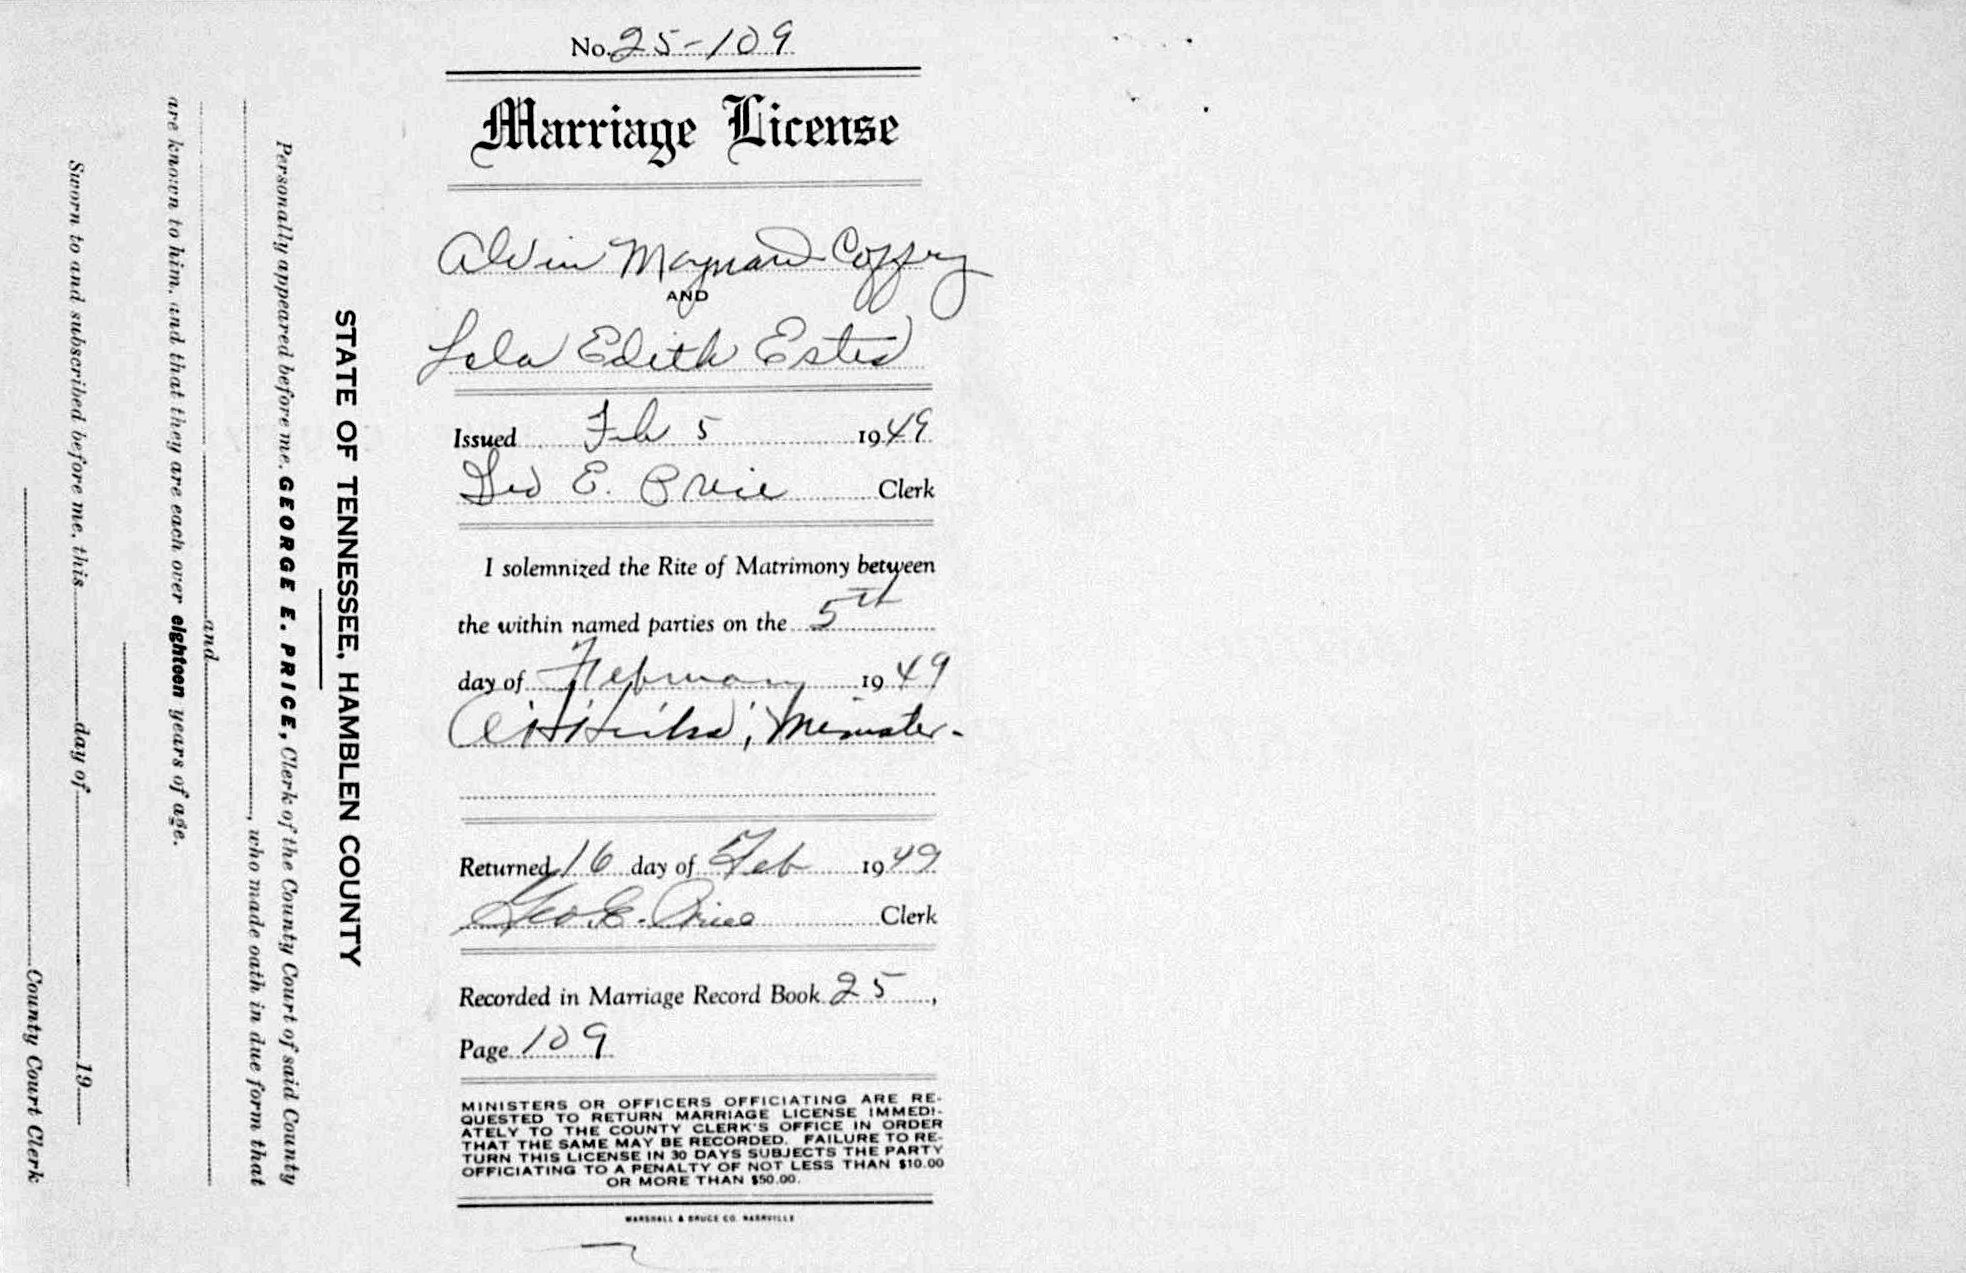 No. 25-109
Marriage License
Alvin Maynard Coffey
AND
Lola Edith Estes
Issued Feb 5 1949
Geo E. Price Clerk
I solemnized the Rite of Matrimony between
the within named parties on the 5th
day of February 1949
Minister.
Returned 16 day of Feb 1949
Geo. E. Price Clerk
Recorded in Marriage Record Book 25,
Page 109
MINISTERS OR OFFICERS OFFICIATING ARE RE-
QUESTED TO RETURN MARRIAGE LICENSE IMMEDI-
ATELY TO THE COUNTY CLERK'S OFFICE IN ORDER
THAT THE SAME MAY BE RECORDED. FAILURE TO RE-
TURN THIS LICENSE IN 30 DAYS SUBJECTS THE PARTY
OFFICIATING TO A PENALTY OF NOT LESS THAN $10.00
OR MORE THAN $50.00.
MARSHALL & BRUCE CO. NASHVILLE
STATE OF TENNESSEE, HAMBLEN COUNTY
Personally appeared before me, GEORGE E. PRICE, Clerk of the County Court of said County
, who made oath in due form that
and
are known to him, and that they are each over eighteen years of age.
Sworn to and subscribed before me, this day of 19
County Court Clerk